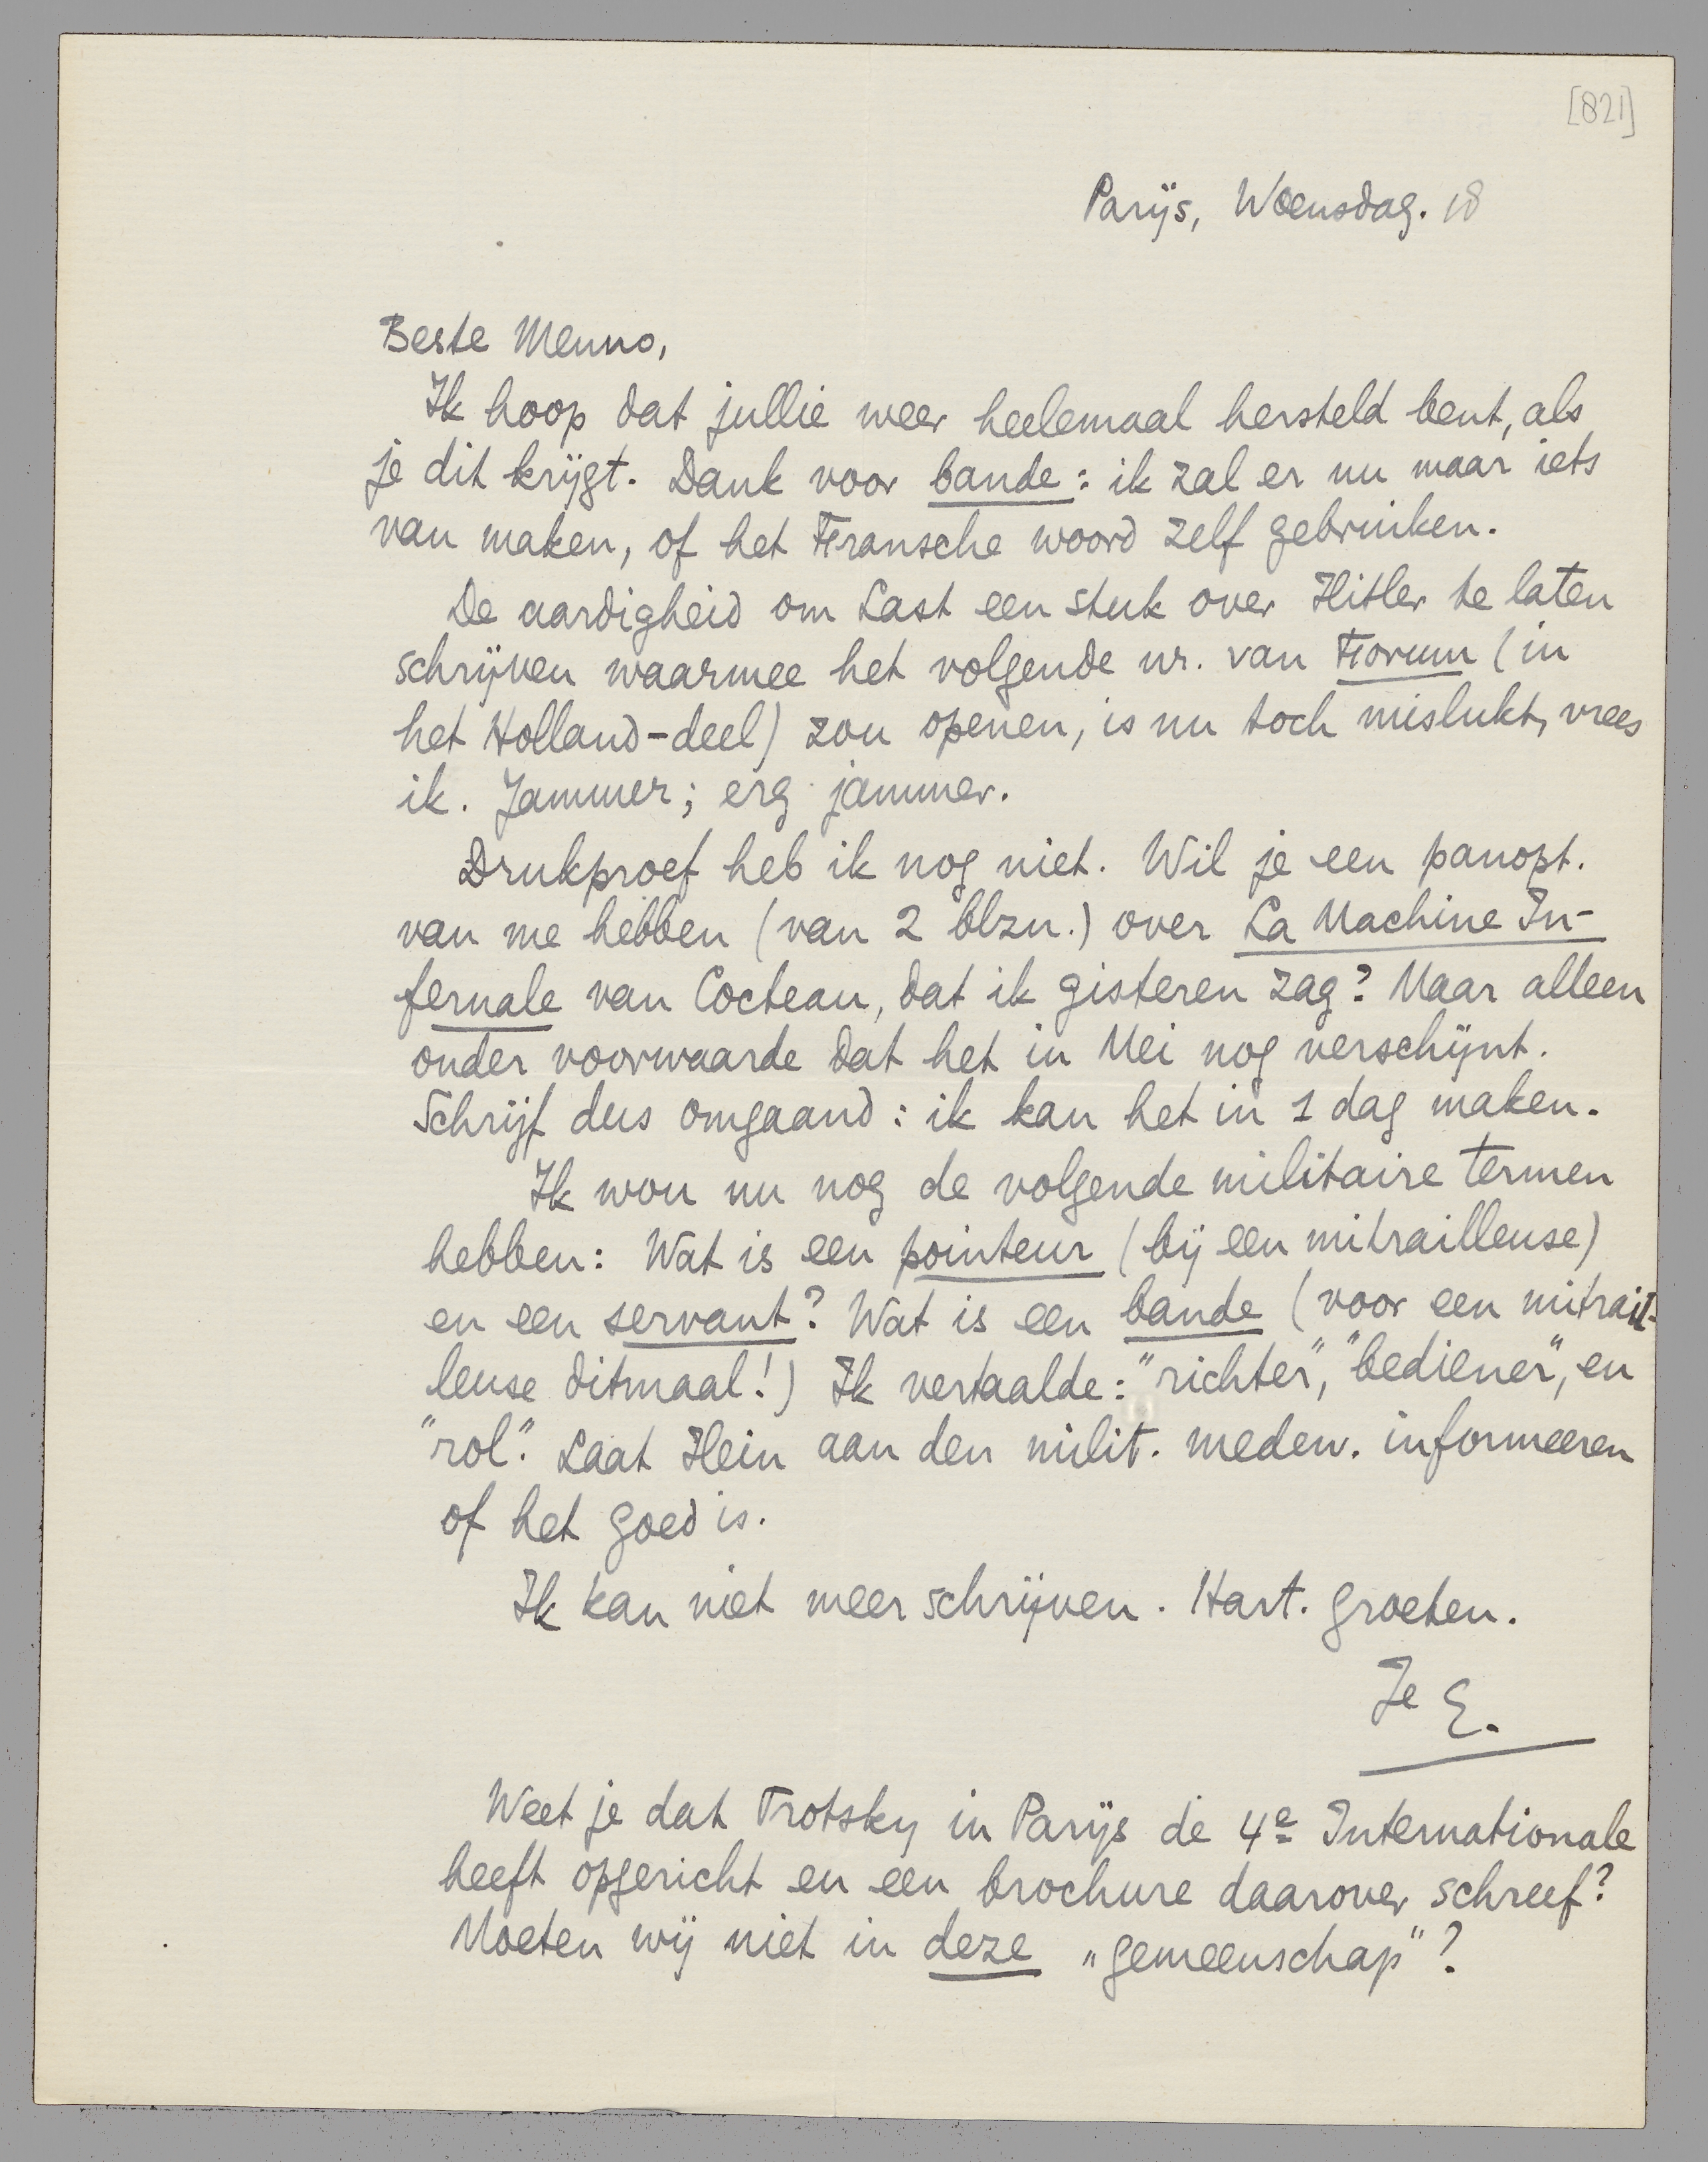 [821]
Parijs, Woensdag. 18
Beste Menno,
Ik hoop dat jullie weer heelemaal hersteld bent, als
je dit krijgt. Dank voor bande: ik zal er nu maar iets
van maken, of het Fransche woord zelf gebruiken.
De aardigheid om Last een stuk over Hitler te laten
schrijven waarmee het volgende nr. van Forum (in
het Holland-deel) zou openen, is nu toch mislukt, vrees
ik. Jammer; erg jammer.
Drukproef heb ik nog niet. Wil je een panopt.
van me hebben (van 2 blzn.) over La Machine In-
fernale van Cocteau, dat ik gisteren zag? Maar alleen
onder voorwaarde dat het in Mei nog verschijnt.
Schrijf dus omgaand: ik kan het in 1 dag maken.
Ik wou nu nog de volgende militaire termen
hebben: Wat is een pointeur (bij een mitrailleuse)
en een servant? Wat is een bande (voor een mitrail-
leuse ditmaal!) Ik vertaalde: "richter", "bediener", en
"rol". Laat Hein aan den milit. medew. informeeren
of het goed is.
Ik kan niet meer schrijven. Hart. groeten.
Je E.
Weet je dat Trotsky in Parijs de 4e Internationale
heeft opgericht en een brochure daarover schreef?
Moeten wij niet in deze „gemeenschap"?